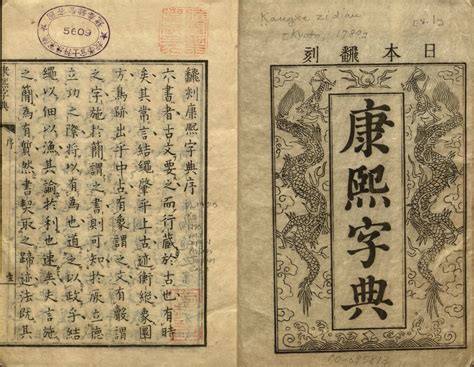 日本翻刻
康熙字典
5609
飜刻康熙字典序
六書者古文要之而行藏於古也有時
矣其常言結繩肇乎上古迹衡縱象圖
方馬跡出乎中古有像謂之文有謂
之字施於簡謂之書則可知於厥立德
立功之際將以有為也道之以政乎結
繩以佃以漁其諭於利也速矣言施
之簡為有然書契取之歸迹法既其
康熙字典
序